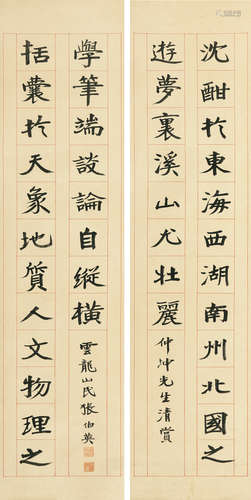 沈酣於東海西湖南州北國之
遊夢裏溪山尤壯麗
仲坤先生清賞
括囊於天象地質人文物理之
學筆端談論自縱橫
雲龍山民張伯英